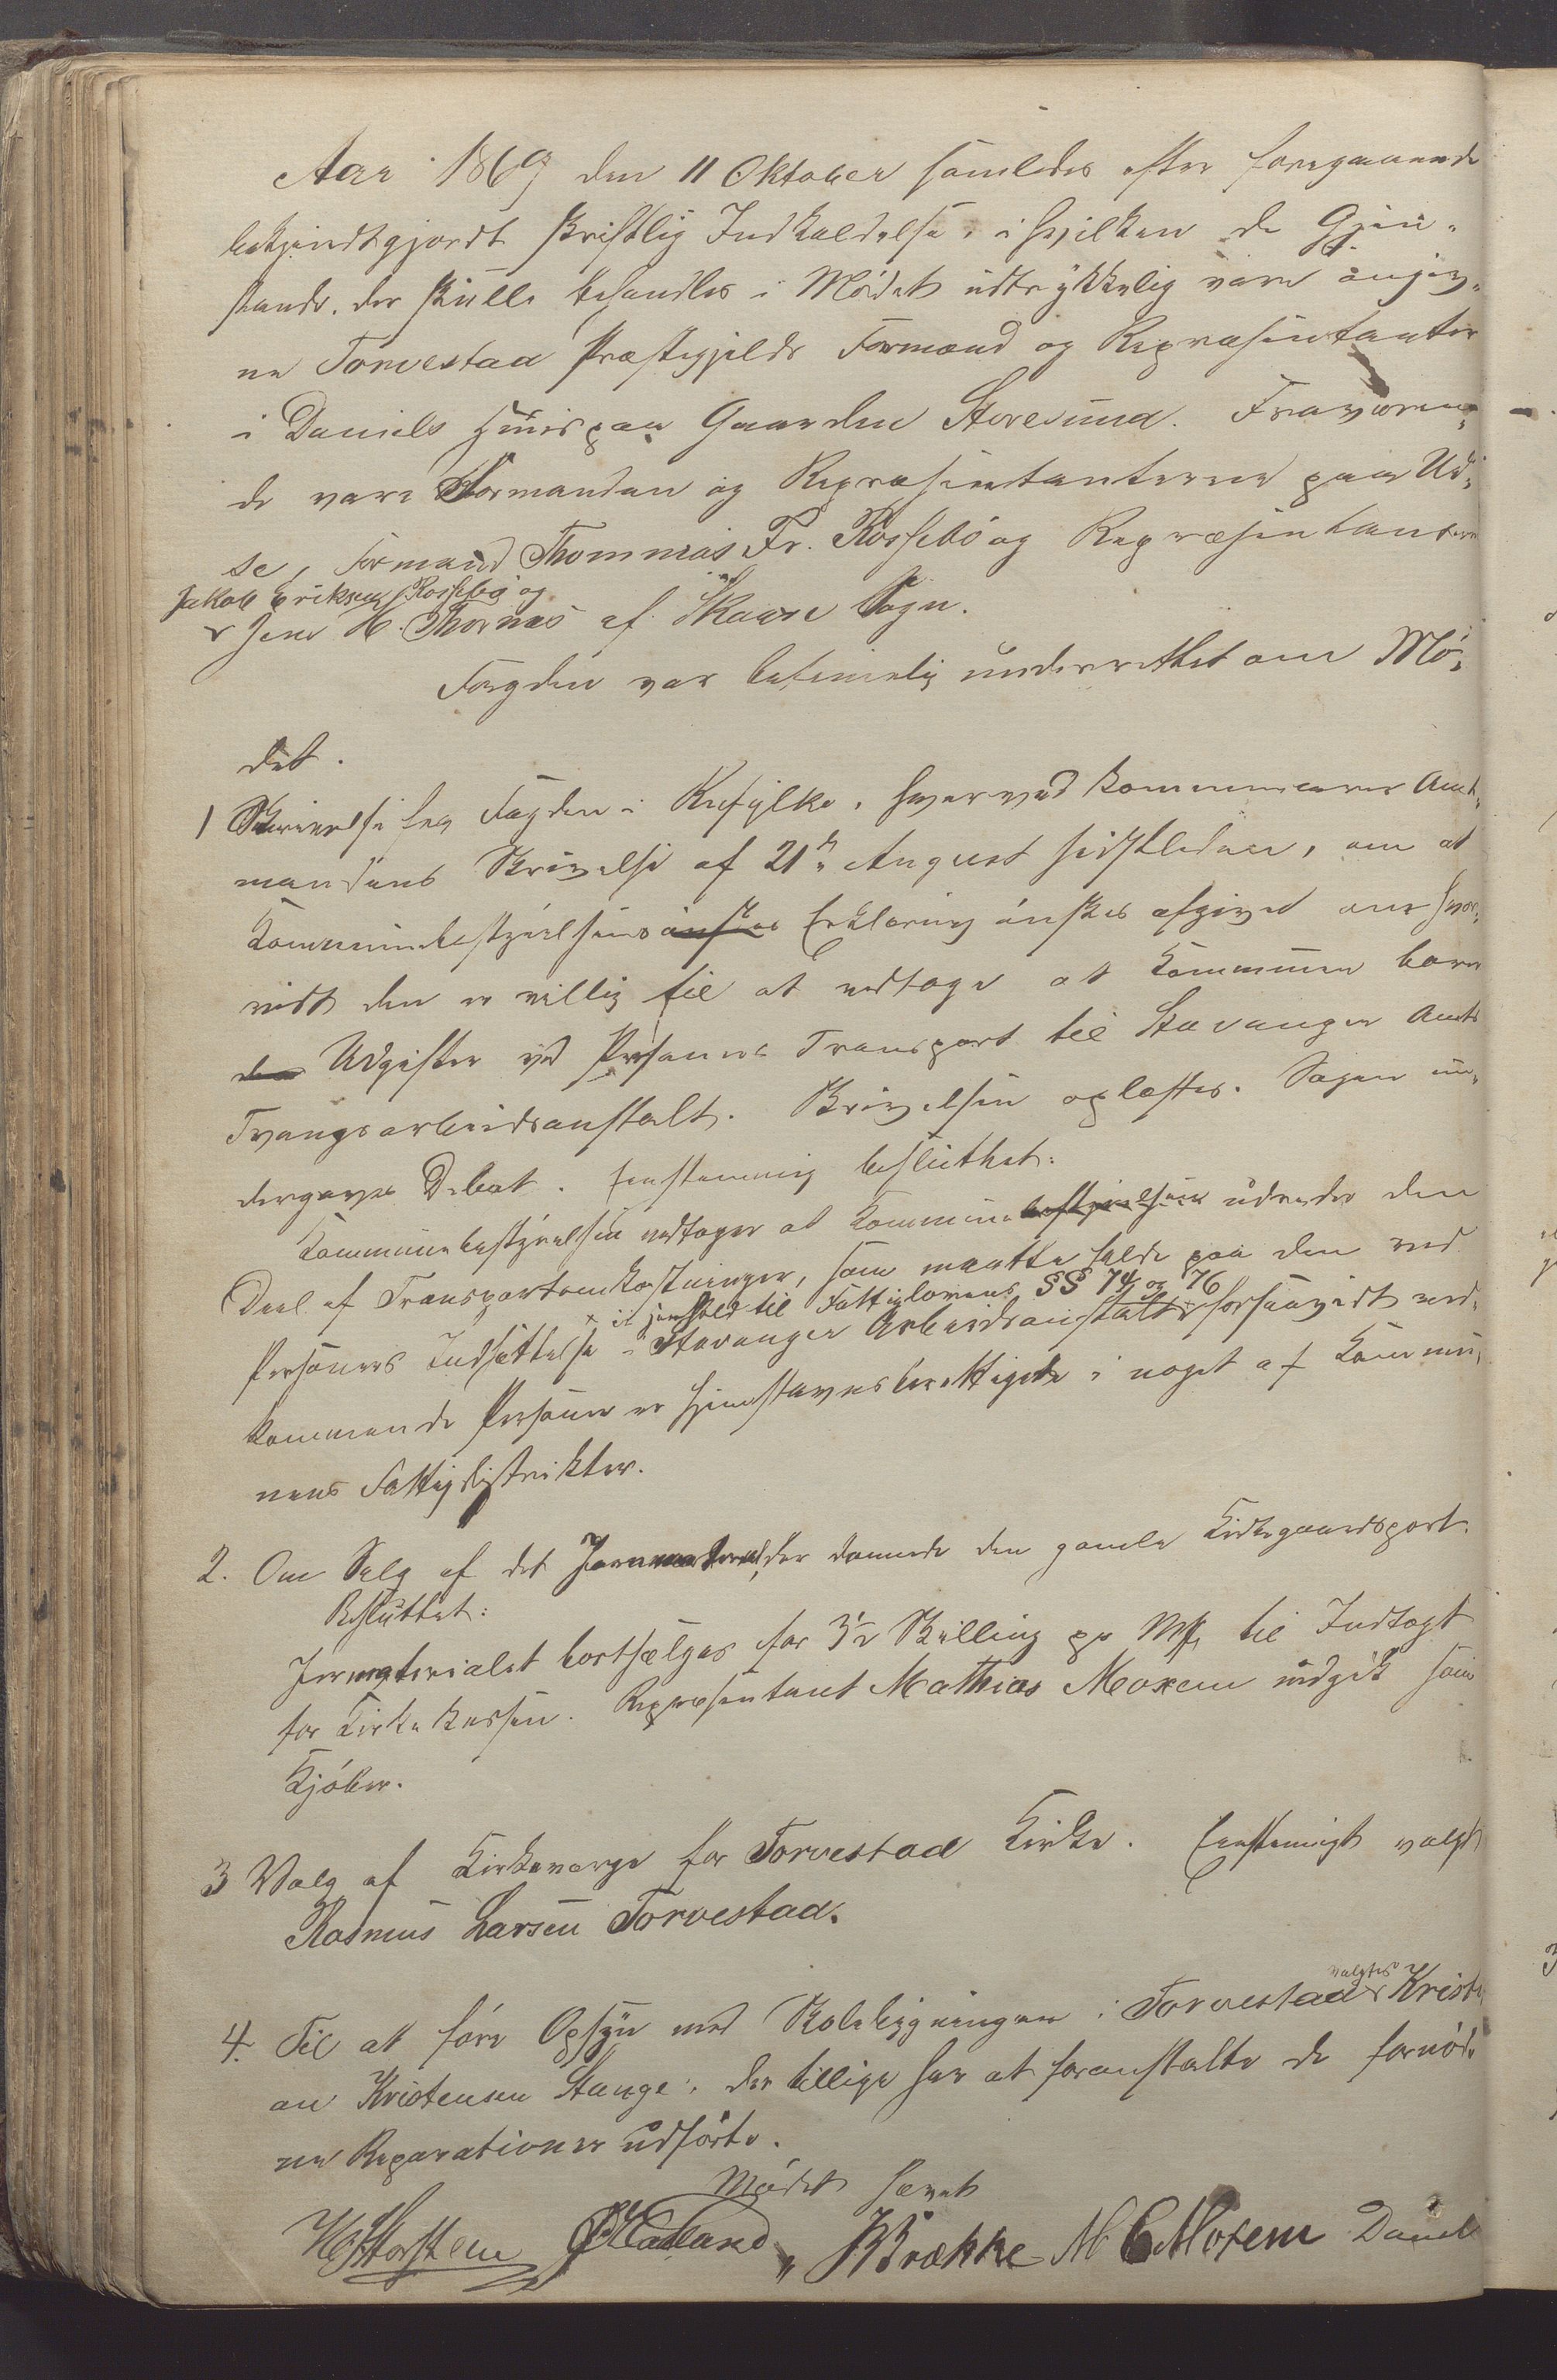 Aar 1869 den 11 Oktober samledes efter foregaaende
bekjendtgjordt skriftlig Indkaldelse, i hvilken de Gjen-
stande, der skulle behandles i Mødet udtrykkelig vare angiv-
ne Torvestad Præstegjelds Formænd og Repræsentanter
i Daniels Huus paa Gaarden Storesund. Fraværen-
de vare Formanden og Repræsentanterne paa Ud-
se, Formand Thommas Fr. Rossebø og Repræsentanterne
Jakob Eriksen Rossebø og
Jens H. Thornæs af Skaare Sogn.
Fogden var betimelig underrettet om Mø-
det.
1 Skrivelse fra Fogden i Ryfylke, hvorved kommuniceres Amt-
mandens Skrivelse af 21de August sidstleden, om at
Kommunebestyrelsens ønskes Erklæring ønskes afgiven om hvor-
vidt den er villig til at vedtage at Kommunen bærer
den Udgifter ved Personers Transport til Stavanger Amts
Tvangsarbeidsanstalt. Skrivelsen oplæstes. Sagen un-
dergaves Debat. Eenstemmig besluttet:
Kommunebestyrelsen vedtager at Kommunebestyrelsen udreder den
Deel af Transportomkostninger, som maatte falde paa den ved
x i henhold til Fattiglovens §§ 74 og 76
Personers Indsættelse i Stavanger Arbeidsanstalt x forsaavidt ved-
kommende Personer er hjemstavnsberettigede i noget af Kommu-
nens Fattigdistrikter.
2. Om Salg af det Jernmateriel, der dannede den gamle Kirkegaardsport.
Besluttet:
Jernmaterialet bortsælges for 3½ Skilling pr Mk til Indtægt
for Kirkekassen. Repræsentant Mathias Moxem indgik som
Kjøber.
3 Valg af Kirkeværge for Torvestad Kirke. Eenstemmigt valgt
Rasmus Larsen Torvestad.
valgtes
4. Til at føre Opsyn med Skolebygningen i Torvestad x Kristi
an Kristensen Stange, der tillige har at foranstalte de fornød-
ne Reparationer udførte.
Mødet hævet
Daniel